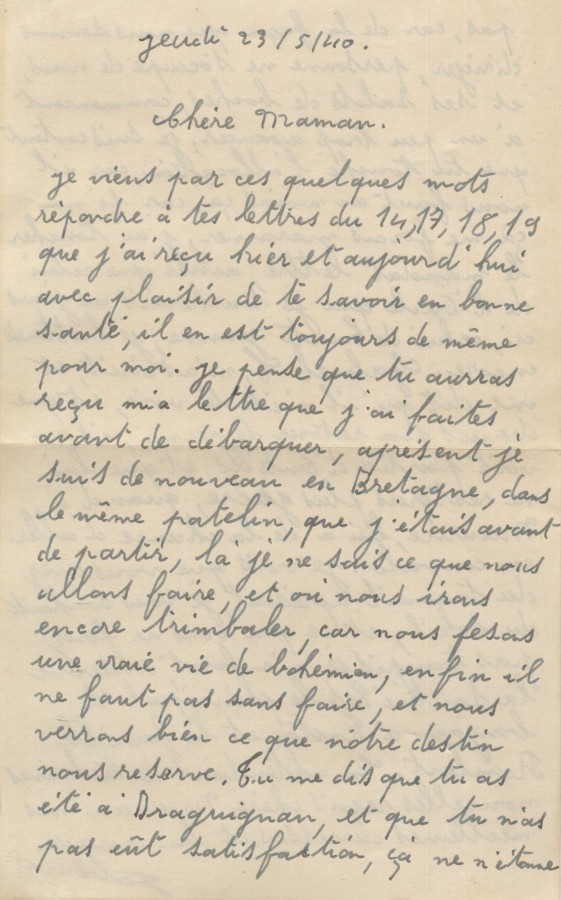 jeudi 23/5/40.
Chère Maman.
je viens par ces quelques mots
répondre à tes lettres du 14, 17, 18, 19
que j'ai reçu hier et aujourd'hui
avec plaisir de te savoir en bonne
santé, il en est toujours de même
pour moi. je pense que tu aurras
reçu ma lettre que j'ai faites
avant de débarquer, aprésent je
suis de nouveau en Bretagne, dans
le même patelin, que j'étais avant
de partir, là je ne sais ce que nous
allons faire, et où nous irons
encore trimbaler, car nous fesons
une vraie vie de bohémien, enfin il
ne faut pas sans faire, et nous
verrons bien ce que notre destin
nous reserve. Tu me dis que tu as
été à Draguignan, et que tu n'as
pas eût satisfaction, çà ne n'étonne